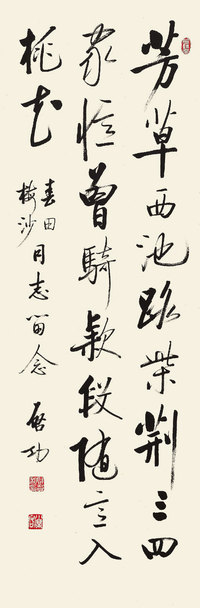 芳草西池路柴荆三四
家忆曾骑款段随意入
桃花
春田
梅沙
同志留念
启功